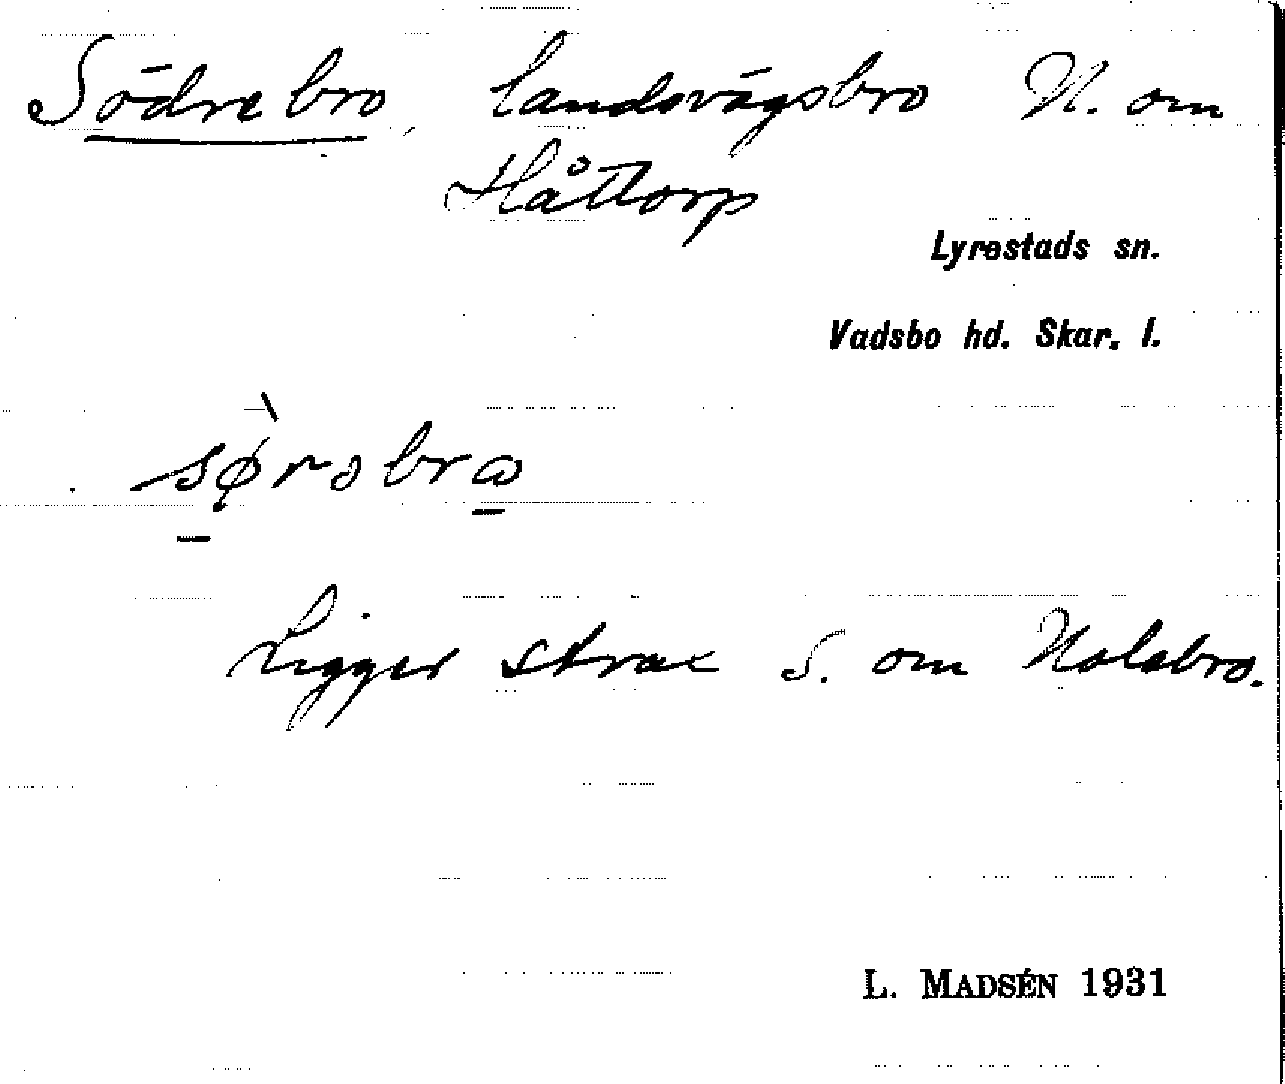 Södrebro, landsvägsbro N. om
Håttorp
Lyrestads sn.
Vadsbo hd. Skar. l.
sørəbrɷ
Ligger strax S. om Nolebro.
L. MADSÉN 1931